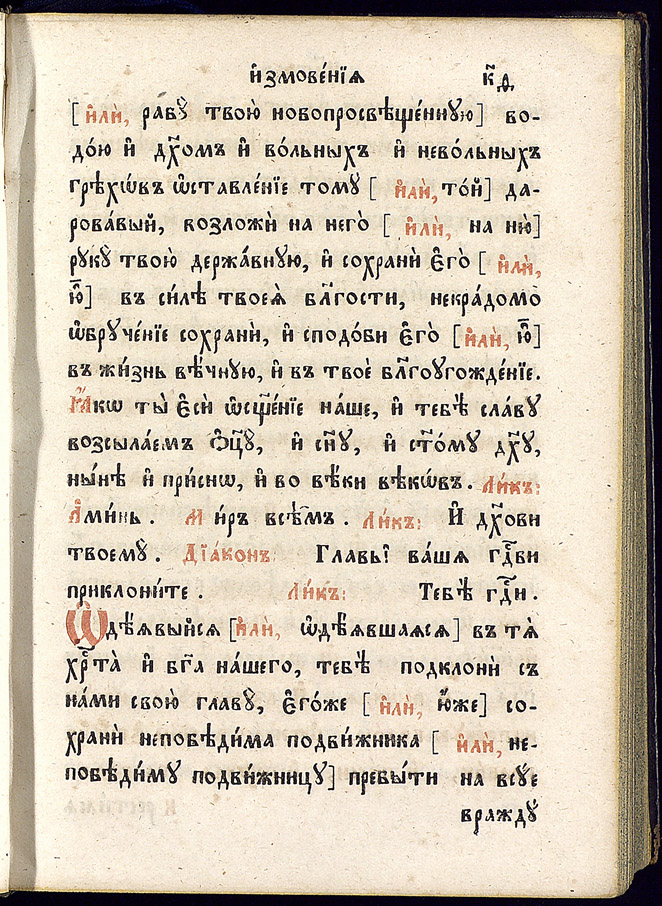 и҆змове́нїѧ к҃д
[ и҆лѝ, рабꙋ̀ твою̀ новопросвѣще́ннꙋю] во-
до́ю и҆ дх҃омъ и҆ во́льныхъ и҆ нево́льныхъ
грѣхѡ́въ ѡ҆ставле́нїе томꙋ̀ [ и҆лѝ, то́й] да-
рова́вый, возложѝ на него̀ [ и҆лѝ, на ню̀]
рꙋ́кꙋ твою̀ держа́внꙋю, и҆ сохранѝ є҆го̀ [ и҆лѝ,
ю҆̀] въ си́лѣ твоеѧ̀ бл҃гости, некра́домо
ѡ҆брꙋче́нїе сохранѝ, и҆ сподо́би є҆го̀ [и҆лѝ, ю҆̀]
въ жи́знь вѣ́чнꙋю, и҆ въ твоѐ бл҃гоꙋгожде́нїе.
Ꙗ҆́кѡ ты̀ є҆сѝ ѡ҆сщ҃е́нїе на́ше, и҆ тебѣ̀ сла́вꙋ
возсыла́емъ ѻ҆ц҃ꙋ̀, и҆ сн҃ꙋ, и҆ ст҃о́мꙋ дх҃ꙋ,
ны́нѣ и҆ при́снѡ, и҆ во вѣ́ки вѣкѡ́въ. Ли́къ:
А҆ми́нь. Ми́ръ всѣ̑мъ. Ли́къ: И҆ дх҃ови
твоемꙋ̀. Дїа́конъ: Главы̀ ва́шѧ гдⷭ҇ви
приклони́те. Ли́къ: Тебѣ̀ гдⷭ҇и.
Ѡ҆дѣ́ѧвыйсѧ [и҆лѝ, ѡ҆дѣ́ѧвшаѧсѧ] въ тѧ̀
хрⷭ҇та̀ и҆ бг҃а на́шего, тебѣ̀ подклонѝ съ
на́ми свою̀ главꙋ̀, є҆го́же [ и҆лѝ, ю҆́же] со-
хранѝ непобѣди́ма подви́жника [ и҆лѝ, не-
побѣди́мꙋ подви́жницꙋ] пребы́ти на всꙋ́е
враждꙋ̀